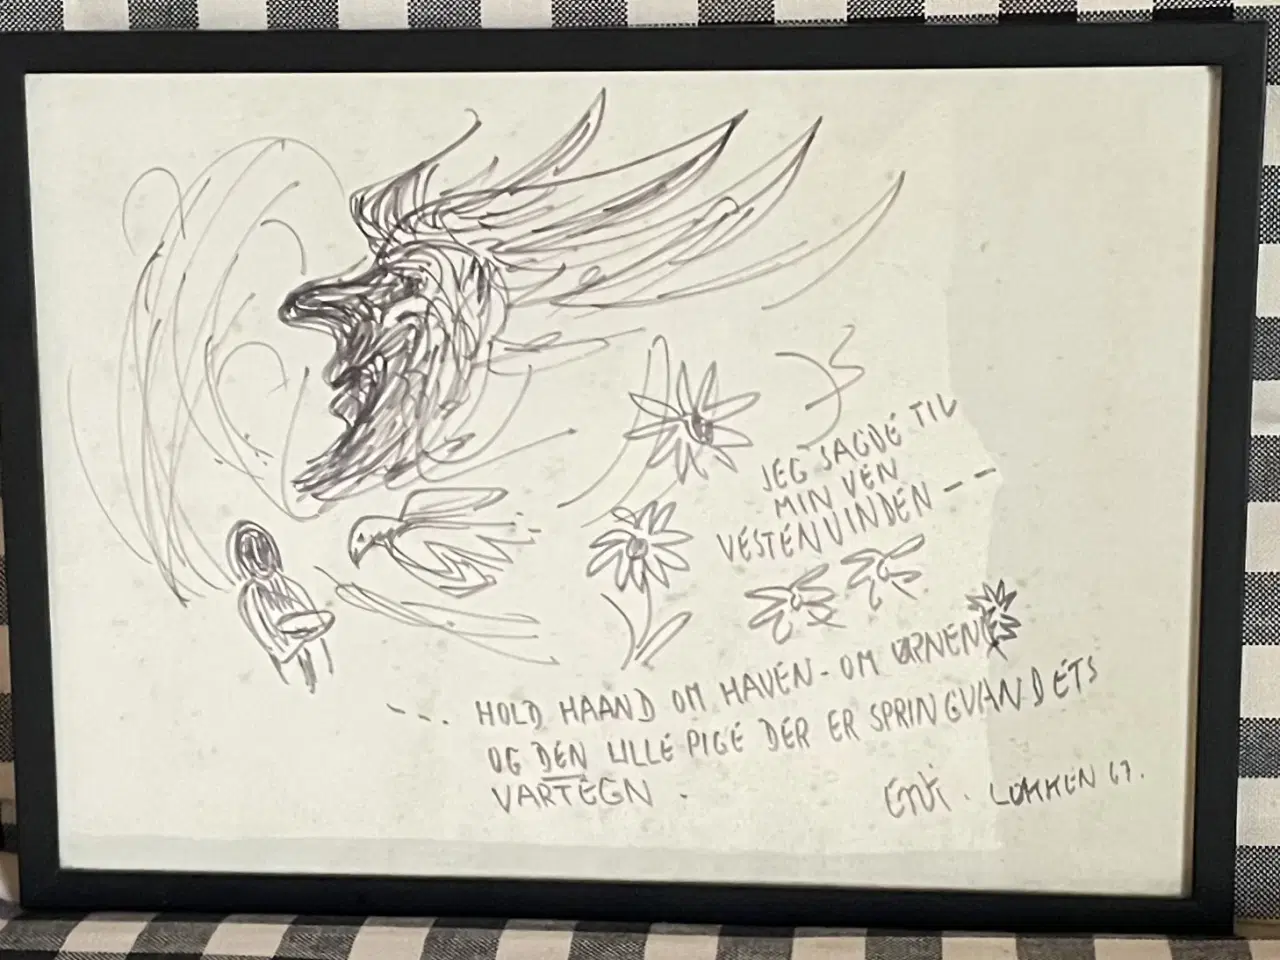 JEG SAGDE TIL
MIN VEN
VESTENVINDEN --
--. HOLD HAAND OM HAVEN - OM ØRNENE
OG DEN LILLE PIGE DER ER SPRINGVANDETS
VARTEGN .
LØKKEN 67.